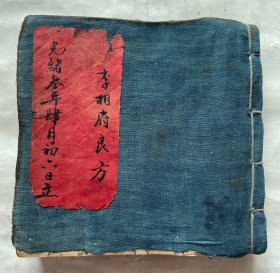 李相府良方
光緒叁年肆月初六日立